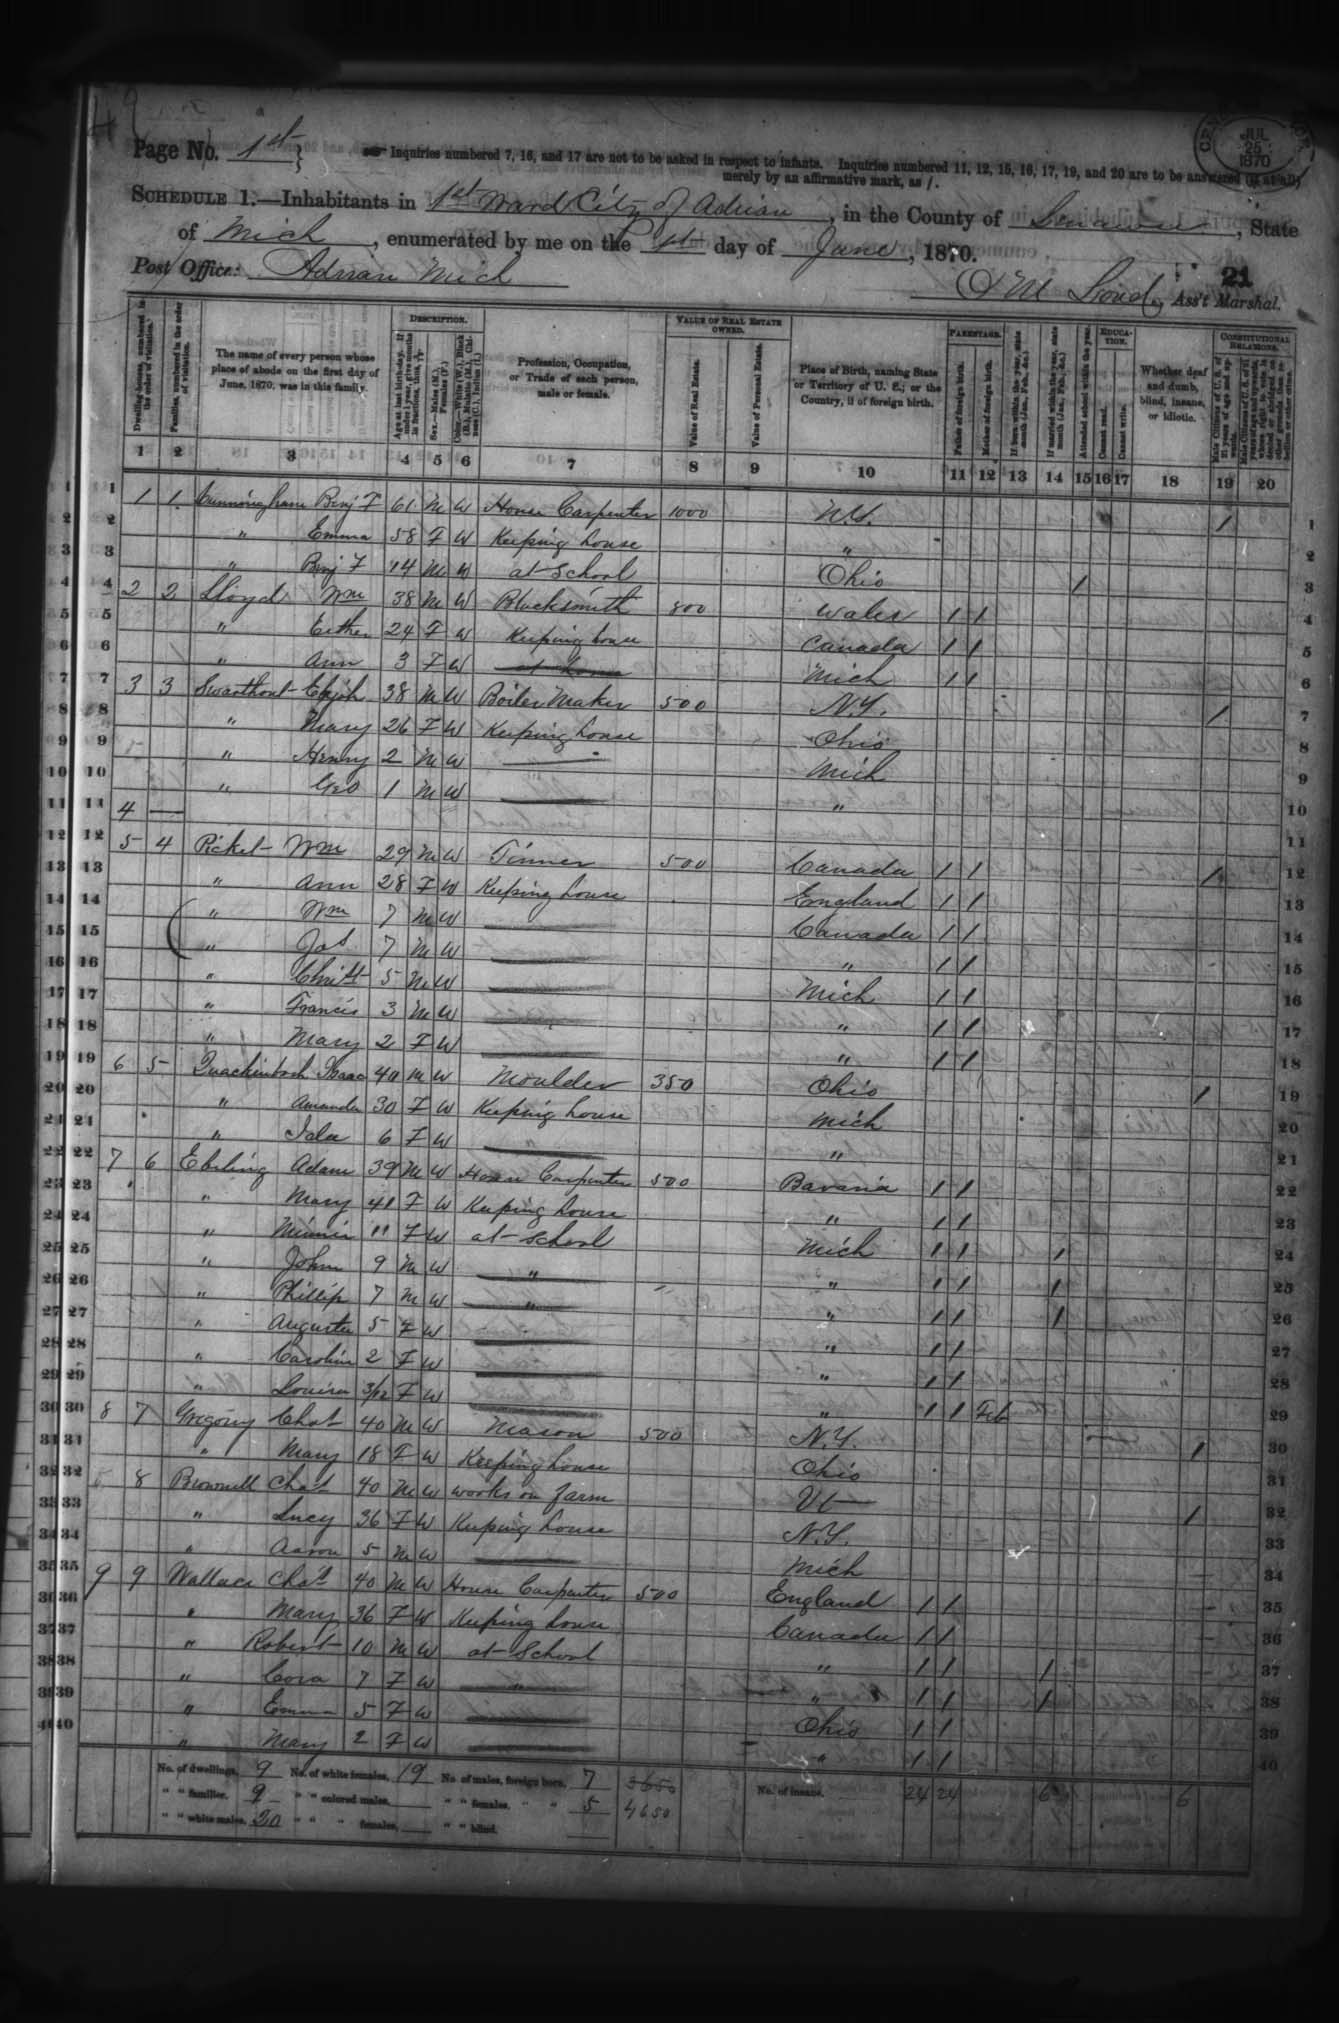 49
Page No. 1st }
Inquiries numbered 7, 16, and 17 are not to be asked in respect to infants. Inquiries numbered 11, 12, 15, 16, 17, 19, and 20 are to be answered (if at all)
merely by an affirmative mark, as /.
JUL
25
1870
SCHEDULE 1.—Inhabitants in 1st Ward City of Adrian, in the County of Lenawee, State
of Mich, enumerated by me on the 1st day of June, 1870.
Post Office: Adrian Mich
21
Ass't Marshal.
Dwelling-houses, numbered in the order of visitation.
Families, numbered in the order of visitation.
The name of every person whose place of abode on the first day of June, 1870, was in this family.
DESCRIPTION.
Age at last birth-day. If under 1 year, give months in fractions, thus, 3/12
Sex.—Males (M.), Females (F.)
Color.—White (W.), Black (B.), Mulatto (M.), Chinese (C.), Indian (I.)
Profession, Occupation, or Trade of each person, male or female.
VALUE OF REAL ESTATE OWNED.
Value of Real Estate.
Value of Personal Estate.
Place of Birth, naming State or Territory of U. S.; or the Country, if of foreign birth.
PARENTAGE.
Father of foreign birth.
Mother of foreign birth.
If born within the year, state month (Jan., Feb., &c.)
If married within the year, state month (Jan., Feb., &c.)
Attended school within the year.
EDUCATION.
Cannot read.
Cannot write.
Whether deaf and dumb, blind, insane, or idiotic.
CONSTITUTIONAL RELATIONS.
Male Citizens of U. S. of 21 years of age and upwards.
Male Citizens of U. S. of 21 years of age and upwards, whose right to vote is denied or abridged on other grounds than rebellion or other crime.
1 2 3 4 5 6 7 8 9 10 11 12 13 14 15 16 17 18 19 20
1 1 1 Cunningham Benj F 61 M W House Carpenter 1000 N.Y. 1 1
2 " Emma 58 F W Keeping house " 2
3 " Benj F 14 M W at School Ohio 1 3
4 2 2 Lloyd Wm 38 M W Blacksmith 800 Wales 1 1 4
5 " Esther 24 F W Keeping house Canada 1 1 5
6 " Ann 3 F W at home Mich 1 1 6
7 3 3 Swarthout Elijah 38 M W Boiler Maker 500 N.Y. 1 7
8 " Mary 26 F W Keeping house Ohio 8
9 " Henry 2 M W Mich 9
10 " Geo 1 M W " 10
11 4 — 11
12 5 4 Picket Wm 29 M W Tinner 500 Canada 1 1 1 12
13 " Ann 28 F W Keeping house England 1 1 13
14 " Wm 7 M W Canada 1 1 14
15 " Jas 7 M W " 1 1 15
16 " 5 M W Mich 1 1 16
17 " Francis 3 M W " 1 1 17
18 " Mary 2 F W " 1 1 18
19 6 5 Quackenbosh Isaac 40 M W Moulder 350 Ohio 1 19
20 " Amanda 30 F W Keeping house Mich 20
21 " Ida 6 F W " " 21
22 7 6 Ebeling Adam 39 M W House Carpenter 500 Bavaria 1 1 22
23 " Mary 41 F W Keeping house " 1 1 23
24 " Minnie 11 F W at School Mich 1 1 1 24
25 " John 9 M W " " 1 1 1 25
26 " Phillip 7 M W " " 1 1 1 26
27 " Augusta 5 F W " 1 1 27
28 " Caroline 2 F W " 1 1 28
29 " Louisa 3/12 F W " 1 1 Feb 29
30 8 7 Gregory Chas 40 M W Mason 500 N.Y. 1 30
31 " Mary 18 F W Keeping house Ohio 31
32 8 Brownell Chas 40 M W works on farm Vt 1 32
33 " Lucy 36 F W Keeping house N.Y. 33
34 " Aaron 5 M W Mich 34
35 9 9 Wallace Chas 40 M W House Carpenter 500 England 1 1 35
36 " Mary 36 F W Keeping house Canada 1 1 36
37 " Robert 10 M W at School " 1 1 1 37
38 " Cora 7 F W " " 1 1 1 38
39 " Emma 5 F W Ohio 1 1 39
40 " Mary 2 F W " 1 1 40
No. of dwellings, 9 No. of white females, 19 No. of males, foreign born, 7 3650 No. of insane, 24 24 6 6
" " families, 9 " " colored males, " " females, " " 5 4650
" " white males, 20 " " " females, " " blind,